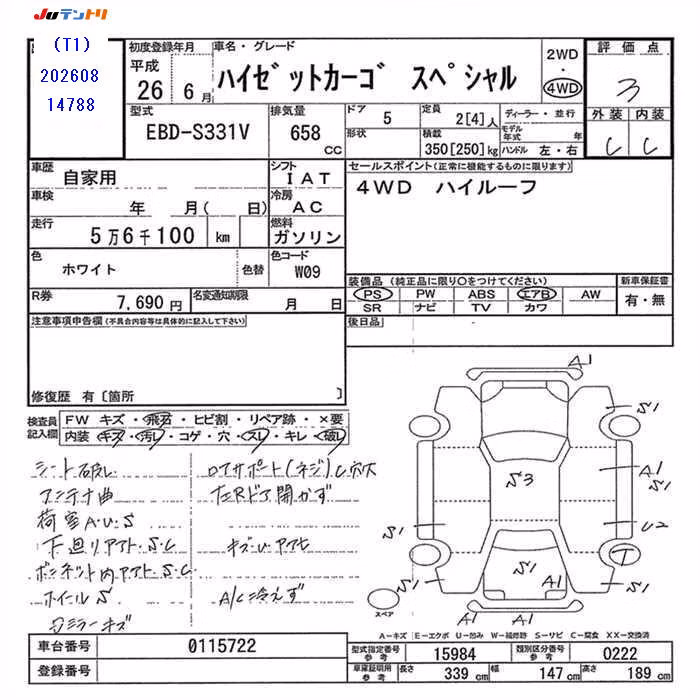 JUテントリ
(T1)
202608
14788
初度登録年月
平成
26 6月
車名・グレード
ハイゼットカーゴ スペシャル
2WD
・
4WD
評価点
3
外装 内装
C C
型式
EBD-S331V
排気量
658
CC
ドア
5
形状
定員
2[4]人
積載
350[250]kg
ディーラー・並行
モデル年式 年
ハンドル 左・右
車歴
自家用
シフト
IAT
車検
年 月( 日)
冷房
AC
走行
5万6千100 km
燃料
ガソリン
色
ホワイト
色替
色コード
W09
R券
7,690円
名変通知期限
月 日
セールスポイント(正常に機能するものに限ります)
4WD ハイルーフ
装備品(純正品に限り〇をつけてください)
PS PW ABS エアB AW
SR ナビ TV カワ
新車保証書
有・無
後日品
注意事項申告欄(不具合内容等は具体的に記入して下さい)
修復歴 有〔箇所 〕
検査員
記入欄
FW キズ・飛石・ヒビ割・リペア跡・×要
内装・キズ・汚レ・コゲ・穴・スレ・キレ・破レ
シート破れ
アンテナ曲
荷室A.U.S
下廻リアフト.S.C
ボンネット内アフト.S.C
ホイールS
キズ
ロアサポート(ネジ)C穴大
左Rドア開かず
キズUアフセ
A/C冷えず
A1
S1
A1
S1
U2
S3
S1
T
S1
S1
S1
A1
A1 A1
スペア
A－キズ E－エクボ U－凹み W－補修跡 S－サビ C－腐食 XX－交換済
車台番号 0115722
登録番号
型式指定番号
参考
15984
類別区分番号
参考
0222
車庫証明用
参考
長さ 339 cm 幅 147 cm 高さ 189 cm